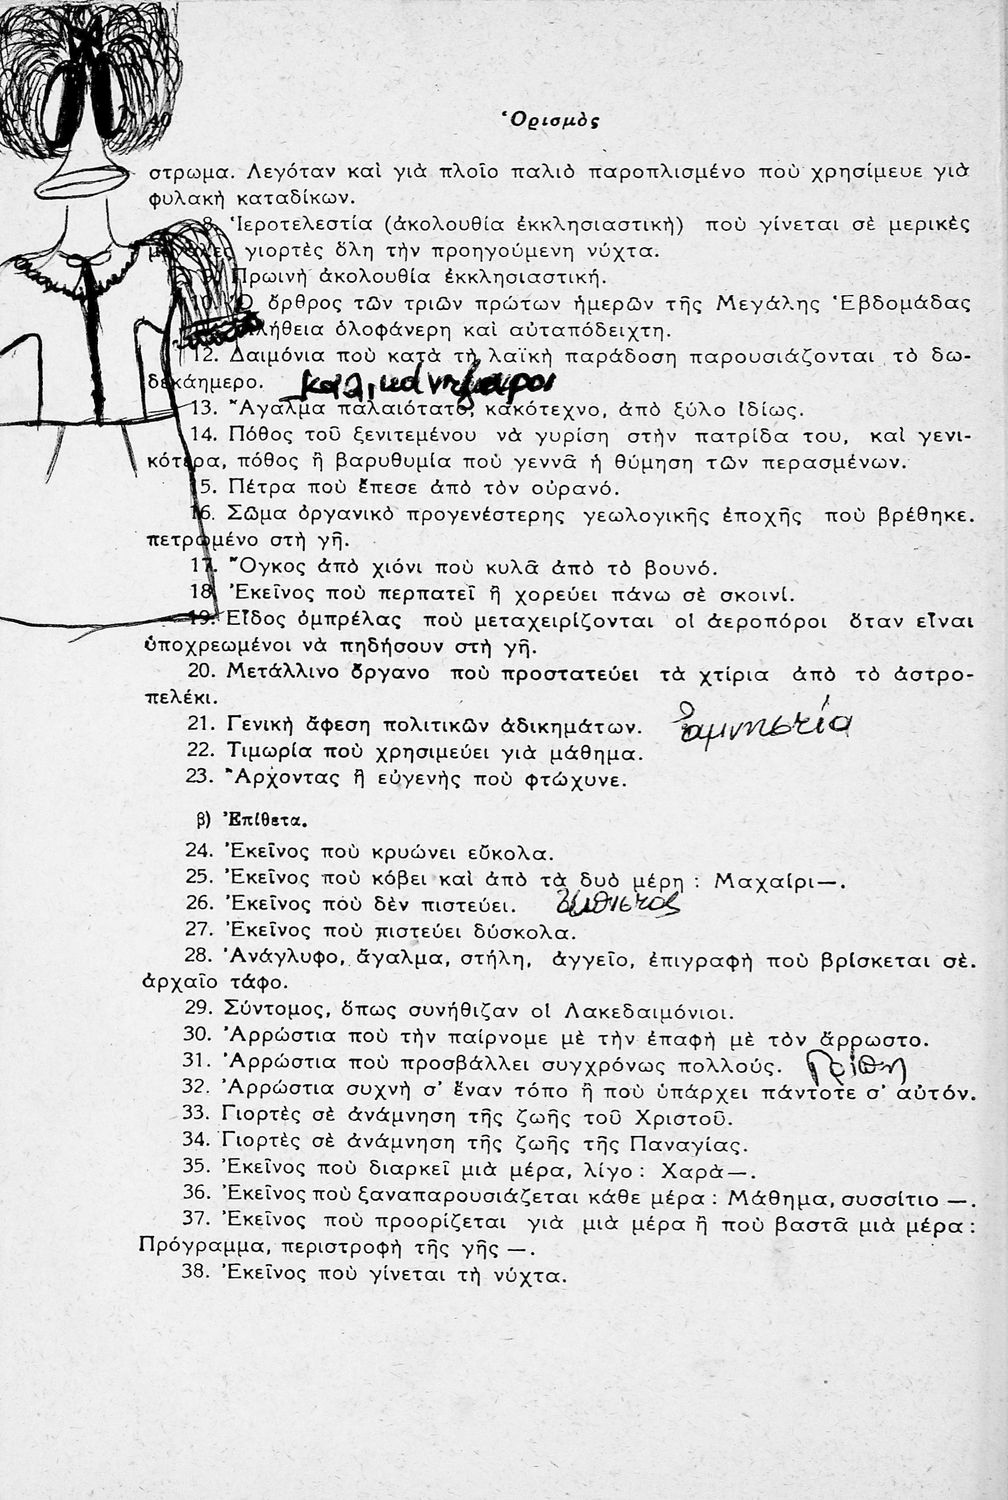 40
Ὁρισμὸς
στρωμα. Λεγόταν καὶ γιὰ πλοῖο παλιὸ παροπλισμένο ποὺ χρησίμευε γιὰ
φυλακὴ καταδίκων.
8. Ἱεροτελεστία (ἀκολουθία ἐκκλησιαστικὴ) ποὺ γίνεται σὲ μερικὲς
μεγάλες γιορτὲς ὅλη τὴν προηγούμενη νύχτα.
9. Πρωινὴ ἀκολουθία ἐκκλησιαστική.
10. Ὁ ὄρθρος τῶν τριῶν πρώτων ἡμερῶν τῆς Μεγάλης Ἑβδομάδας
λήθεια ὁλοφάνερη καὶ αὐταπόδειχτη.
12. Δαιμόνια ποὺ κατὰ τὴ λαϊκὴ παράδοση παρουσιάζονται τὸ δω-
δεκάημερο. καλικάντζαροι
13. Ἄγαλμα παλαιότατο, κακότεχνο, ἀπὸ ξύλο ἰδίως.
14. Πόθος τοῦ ξενιτεμένου νὰ γυρίση στὴν πατρίδα του, καὶ γενι-
κότερα, πόθος ἢ βαρυθυμία ποὺ γεννᾶ ἡ θύμηση τῶν περασμένων.
15. Πέτρα ποὺ ἔπεσε ἀπὸ τὸν οὐρανό.
16. Σῶμα ὀργανικὸ προγενέστερης γεωλογικῆς ἐποχῆς ποὺ βρέθηκε.
πετρωμένο στὴ γῆ.
17. Ὄγκος ἀπὸ χιόνι ποὺ κυλᾶ ἀπὸ τὸ βουνό.
18. Ἐκεῖνος ποὺ περπατεῖ ἢ χορεύει πάνω σὲ σκοινί.
19. Εἶδος ὀμπρέλας ποὺ μεταχειρίζονται οἱ ἀεροπόροι ὅταν εἶναι
ὑποχρεωμένοι νὰ πηδήσουν στὴ γῆ.
20. Μετάλλινο ὄργανο ποὺ προστατεύει τὰ χτίρια ἀπὸ τὸ ἀστρο-
πελέκι.
21. Γενικὴ ἄφεση πολιτικῶν ἀδικημάτων. ἀμνηστία
22. Τιμωρία ποὺ χρησιμεύει γιὰ μάθημα.
23. Ἄρχοντας ἢ εὐγενὴς ποὺ φτώχυνε.
β) Ἐπίθετα.
24. Ἐκεῖνος ποὺ κρυώνει εὔκολα.
25. Ἐκεῖνος ποὺ κόβει καὶ ἀπὸ τὰ δυὸ μέρη : Μαχαίρι—.
26. Ἐκεῖνος ποὺ δὲν πιστεύει.
27. Ἐκεῖνος ποὺ πιστεύει δύσκολα.
28. Ἀνάγλυφο, ἄγαλμα, στήλη, ἀγγεῖο, ἐπιγραφὴ ποὺ βρίσκεται σὲ.
ἀρχαῖο τάφο.
29. Σύντομος, ὅπως συνήθιζαν οἱ Λακεδαιμόνιοι.
30. Ἀρρώστια ποὺ τὴν παίρνομε μὲ τὴν ἐπαφὴ μὲ τὸν ἄρρωστο.
31. Ἀρρώστια ποὺ προσβάλλει συγχρόνως πολλούς.
32. Ἀρρώστια συχνὴ σ' ἕναν τόπο ἢ ποὺ ὑπάρχει πάντοτε σ' αὐτόν.
33. Γιορτὲς σὲ ἀνάμνηση τῆς ζωῆς τοῦ Χριστοῦ.
34. Γιορτὲς σὲ ἀνάμνηση τῆς ζωῆς τῆς Παναγίας.
35. Ἐκεῖνος ποὺ διαρκεῖ μιὰ μέρα, λίγο : Χαρὰ—.
36. Ἐκεῖνος ποὺ ξαναπαρουσιάζεται κάθε μέρα : Μάθημα, συσσίτιο —.
37. Ἐκεῖνος ποὺ προορίζεται γιὰ μιὰ μέρα ἢ ποὺ βαστᾶ μιὰ μέρα :
Πρόγραμμα, περιστροφὴ τῆς γῆς —.
38. Ἐκεῖνος ποὺ γίνεται τὴ νύχτα.